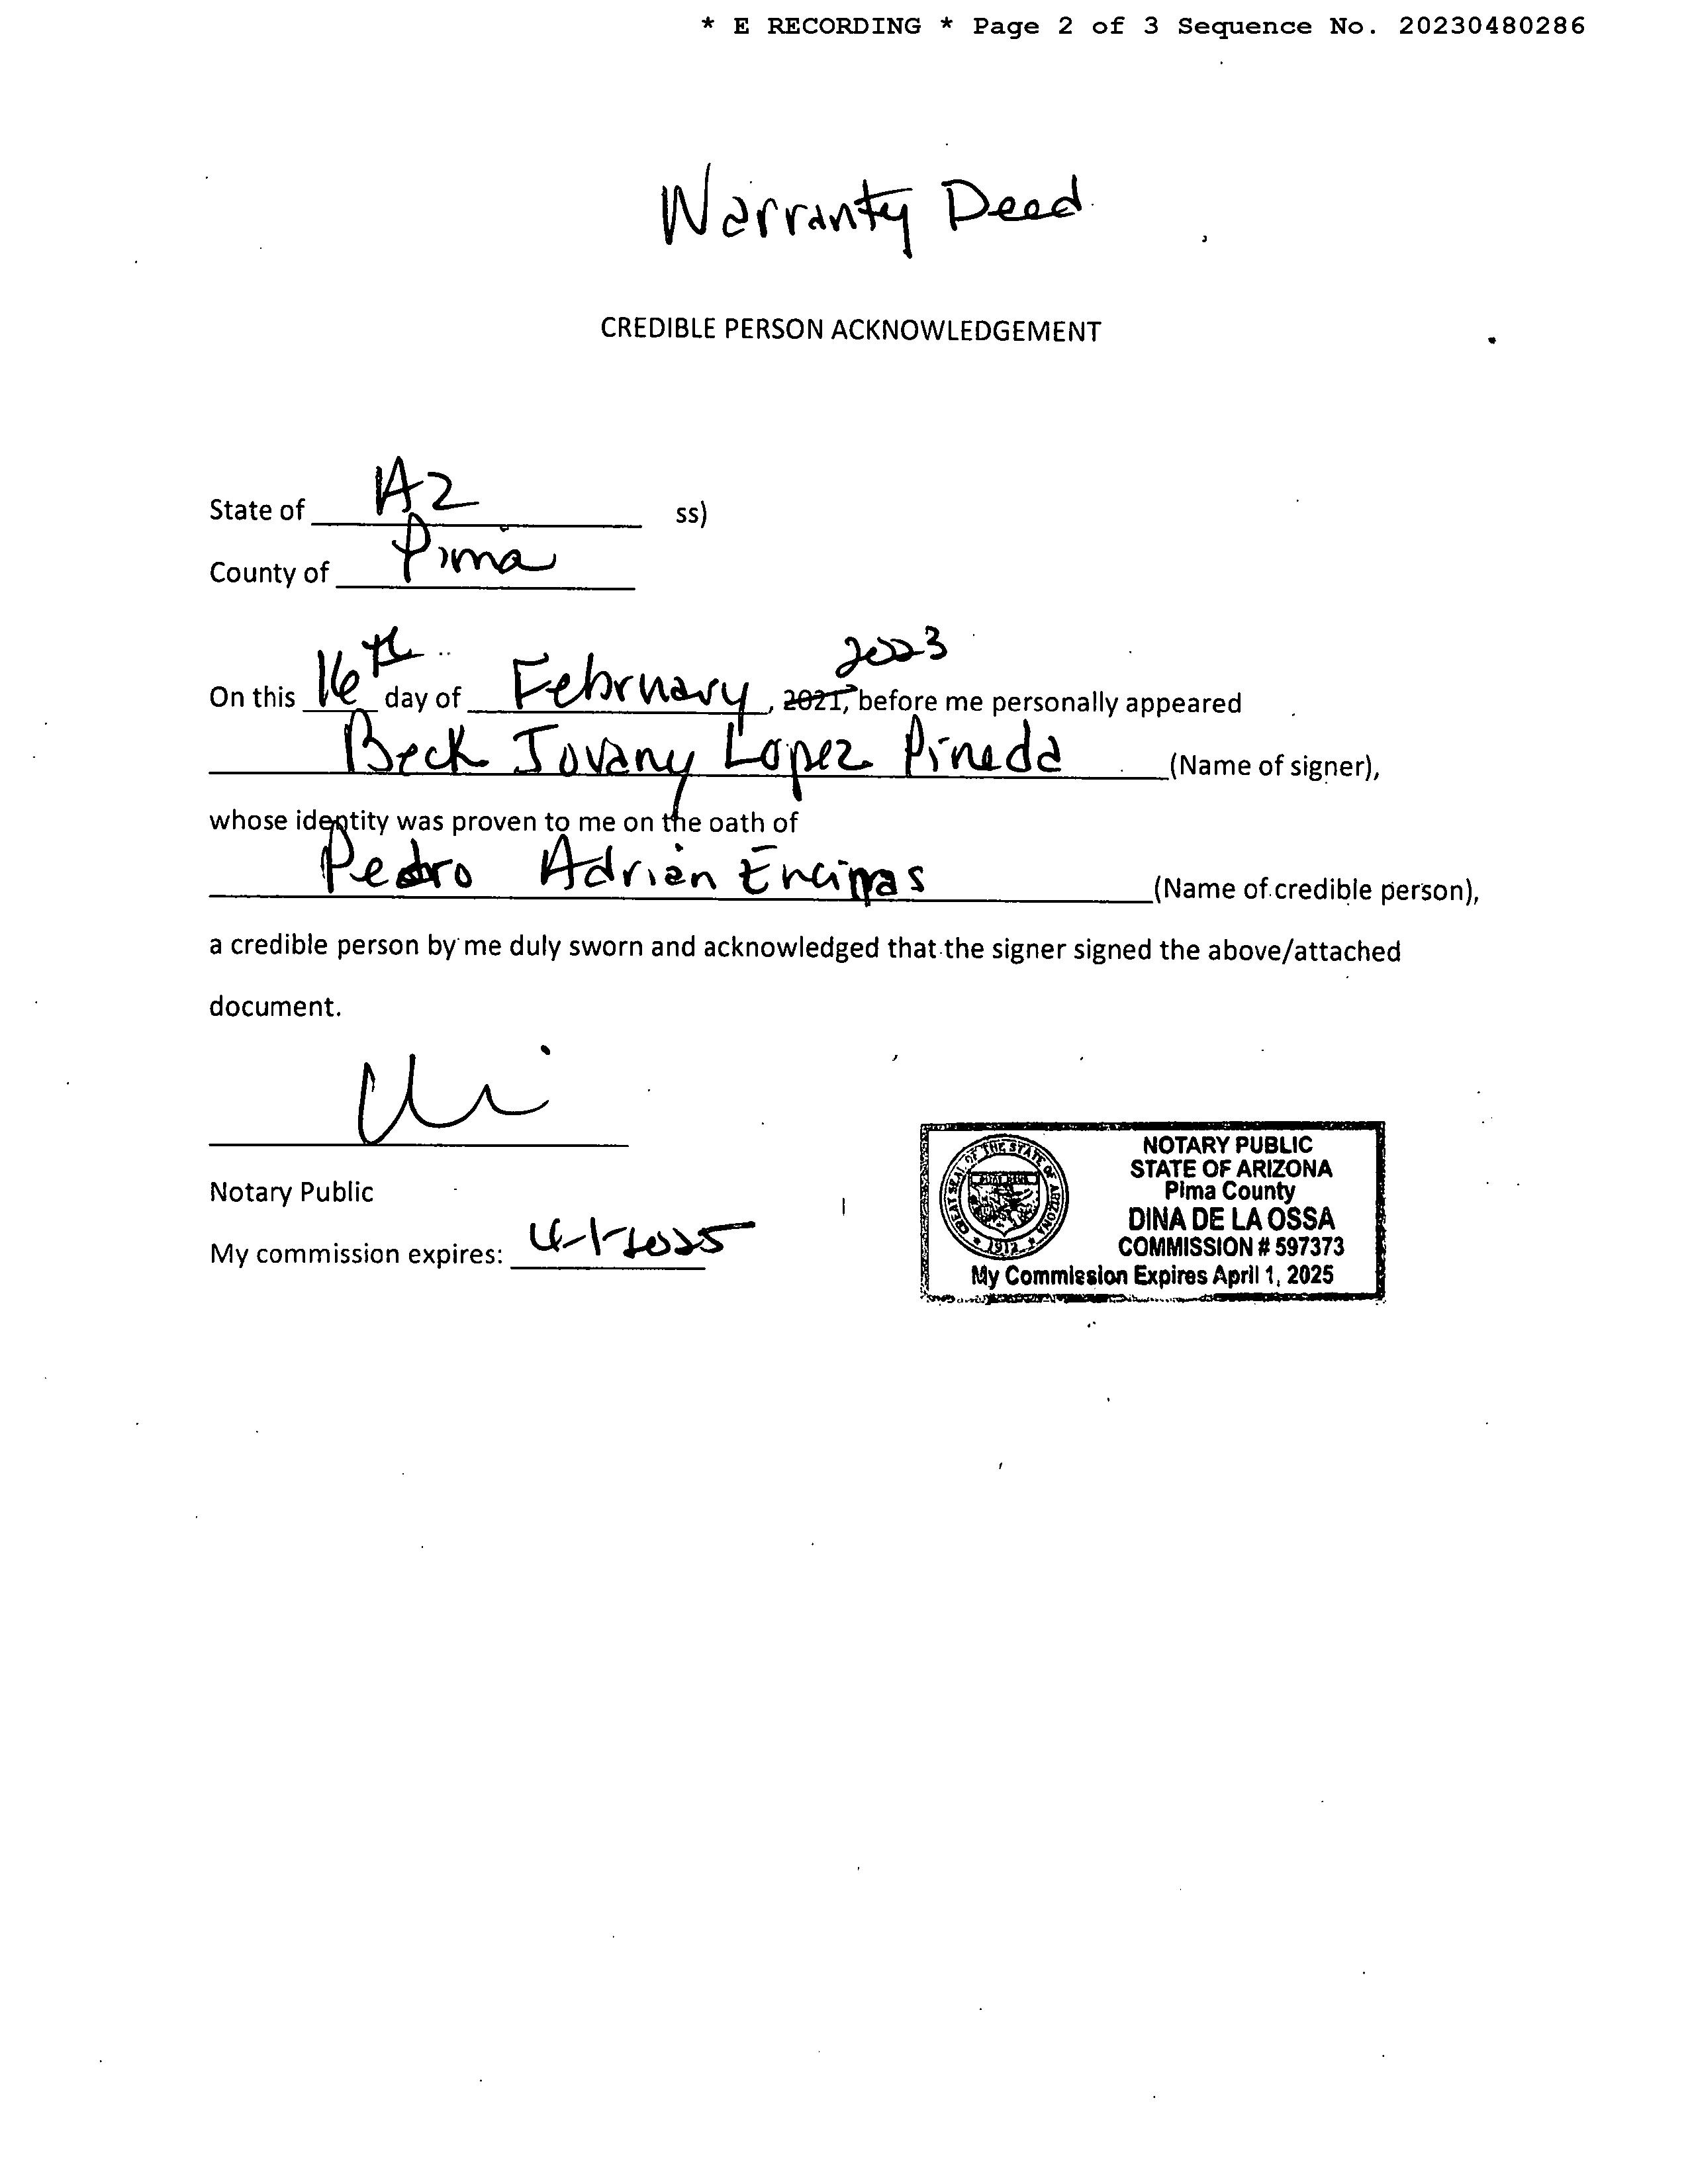 * E RECORDING * Page 2 of 3 Sequence No. 20230480286
Warranty Deed
CREDIBLE PERSON ACKNOWLEDGEMENT
State of AZ ss)
County of Pima
2023
On this 16th day of February, 2021, before me personally appeared
Beck Jovany Lopez Pineda (Name of signer),
whose identity was proven to me on the oath of
Pedro Adrian Encinas (Name of credible person),
a credible person by me duly sworn and acknowledged that the signer signed the above/attached
document.
Notary Public
My commission expires: 4-1-2025
GREAT SEAL OF THE STATE OF ARIZONA
1912
NOTARY PUBLIC
STATE OF ARIZONA
Pima County
DINA DE LA OSSA
COMMISSION # 597373
My Commission Expires April 1, 2025